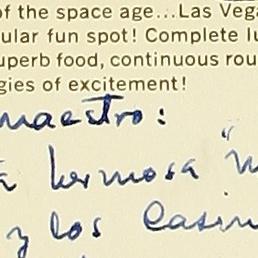 of the space age...Las Vega
ular fun spot! Complete lu
uperb food, continuous rou
gies of excitement!
maestro:
a hermosa "
y los Casin